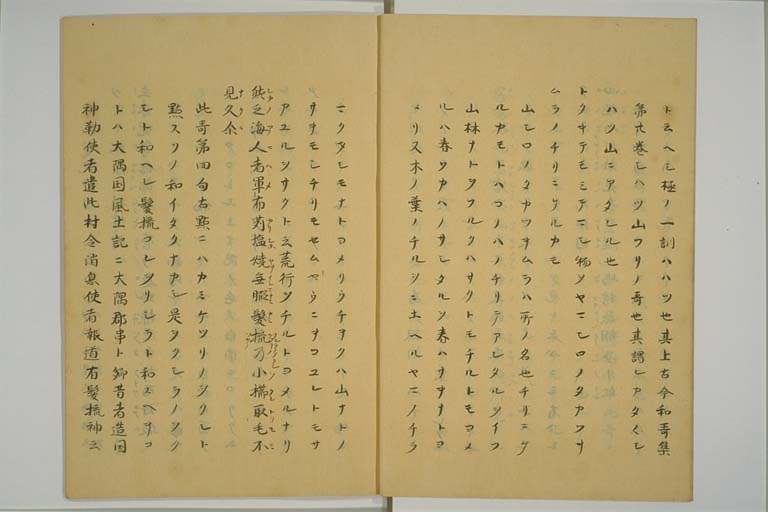 ト云ヘシ極ノ一訓ハハツ也其上古今和哥集
第廿巻ミハツ山フリノ哥也其調ヒアタくし
ハツ山ニアタレル也
トクキテモミテマシ物ヲヤマシロノタカツキ
ムラノチリニケルカモ
山シロノタカツキムラハ所ノ名也チリニケ
ルカモトハコノハノチリテアレタルヲイフ
山林ナトヲフルクハサクトモチルトモヨメ
ルハ春ツカハノサシタルヲ春ハサクサトヨ
メリ又木ノ葉ノチルシニ土ヘルヤマノチラ
ニクタシモナトヨメリウチヲクハ山ナトノ
サヲモシチリモセム ウニヲコユレトモサ
アユルヲサクト云荒行ヲチルトヨメルナリ
然之海人者軍布苅塩焼無暇髪梳乃小櫛取毛不
見久尓
此哥第四句古點ニハカミケツリノヲクシト
點スリノ和イタクナカシ是ヲクシラノヲク
シト和ヘシ髪梳コレヲクシラト和スヘキコ
トハ大隅国風土記ニ大隅郡串ト郷昔者造国
神勒使者遣此村令消息使者報道有髪梳神云